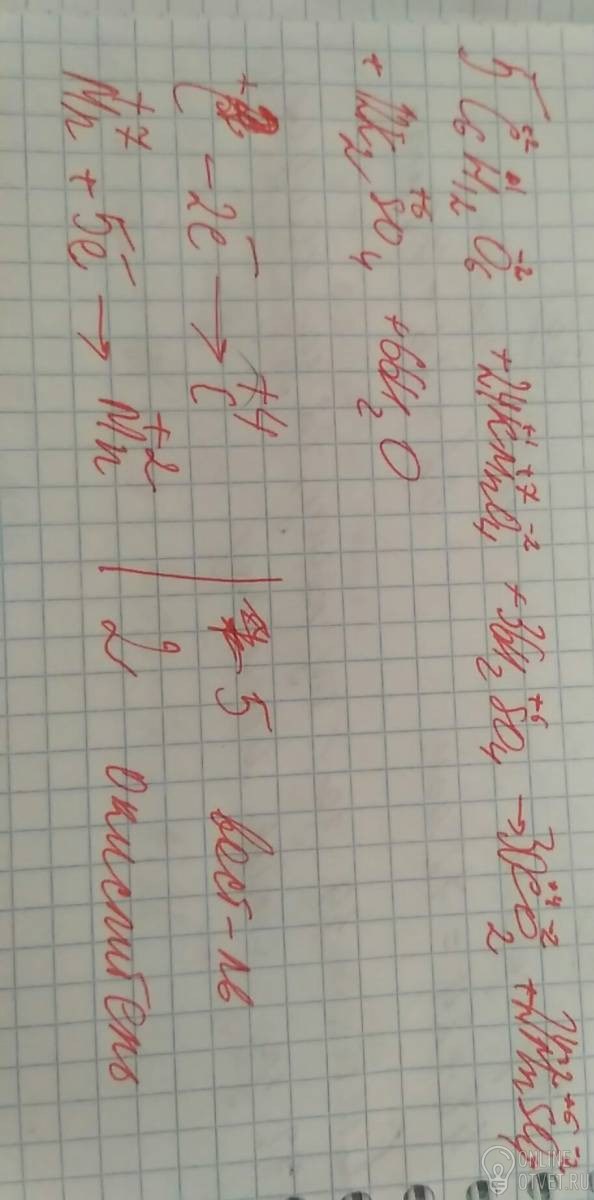 5 C₆⁺²H₁₂⁺¹O₆⁻² + 24K⁺¹Mn⁺⁷O₄⁻² + 36H₂S⁺⁶O₄ → 30C⁺⁴O₂⁻² + 24Mn⁺²S⁺⁶O₄⁻²
+ 12K₂S⁺⁶O₄ + 66H₂O
C⁺ - 2ē → C⁺⁴ | 5 вост-ль
Mn⁺⁷ + 5ē → Mn⁺² | 2 окислитель
ONLINE
OTVET.RU